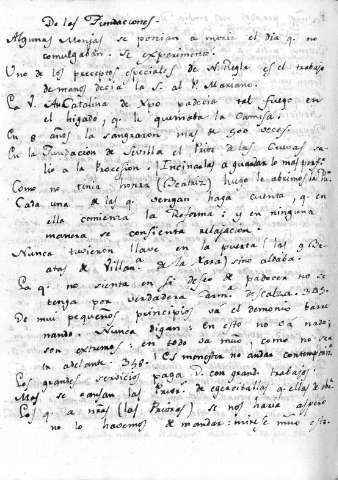 De las Fundaciones.
Algunas Monjas se ponian a morir el dia q. no
comulgaban. Se experimento.
Uno de los preceptos especiales de N. Regla es el trabajo
de manos decia la S. al P. Mariano.
La V. Catalina de Xpo padecia tal fuego en
el higado, q. le quemaba la Camisa.
En 8 años la sangraron mas de 500 veces.
En la Fundacion de Sevilla el Prior de las Cuevas sa-
lio a la Procesion. Incinaalas a guardar lo mas perf.
Como no tenia honra (Beatriz) luego le abrimos la
Cada una de las q. vengan haga cuenta, q. en
ella comienza la Reforma: y en ninguna
manera se consienta relajacion.
Nunca tuvieron llave en la puerta (las 9 Be-
atas de Villan.a de la Xara) sino aldaba.
La q. no sienta en si deseo de padecer no se
tenga por verdadera Carm. Descalza. 343.
De muy pequeños principios va el demonio barre-
nando. Nunca digan: en esto no va nada;
son extremos: en todo va muo, como no sea
ir adelante. 348.
Los grandes servicios paga D. con grand. trabajos.
Mas se cansan las Prior. de
Los q. a nras (las Priores) se nos haria aspero
no lo havemos de mandar: mirese muo